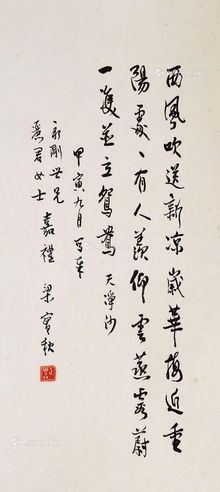 西風吹送新涼歲華接近重
陽處處有人羨仰雲蒸霞蔚
一雙並立鴛鴦 天淨沙
甲寅九月 写奉
永剛世兄
惠君女士 嘉禮 梁實秋